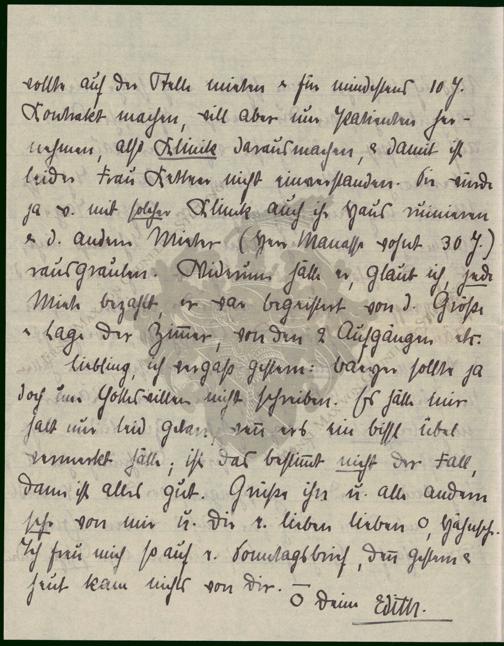 wollte auf der Stelle mieten & für mindestens 10 J.
Kontrakt machen, will aber nur Patienten her-
nehmen, also Klinik daraus machen, & damit ist
leider Frau Kettner nicht einverstanden. Sie würde
ja v. mit solcher Klinik auch ihr Haus ruinieren
& d. andern Mieter (Herr Manasse wohnt 30 J.)
rausgraulen. Widerum hätte er, glaub ich, jede
Miete bezahlt, er war begeistert von d. Größe
& Lage der Zimmer, von den 2 Aufgängen etc.
Liebling, ich vergaß gestern: sollte ja
doch um Gotteswillen nicht schreiben. Es hätte mir
halt nur leid getan, wenn ers ein bissl übel
vermerkt hätte; ist das bestimmt nicht der Fall,
dann ist alles gut. Grüße ihn u. alle andern
sehr von mir u. Dir e. lieben lieben O,
Ich freu mich so auf e. Sonntagsbrief, denn gestern &
heut kam nichts von Dir.
O Deine Edith.